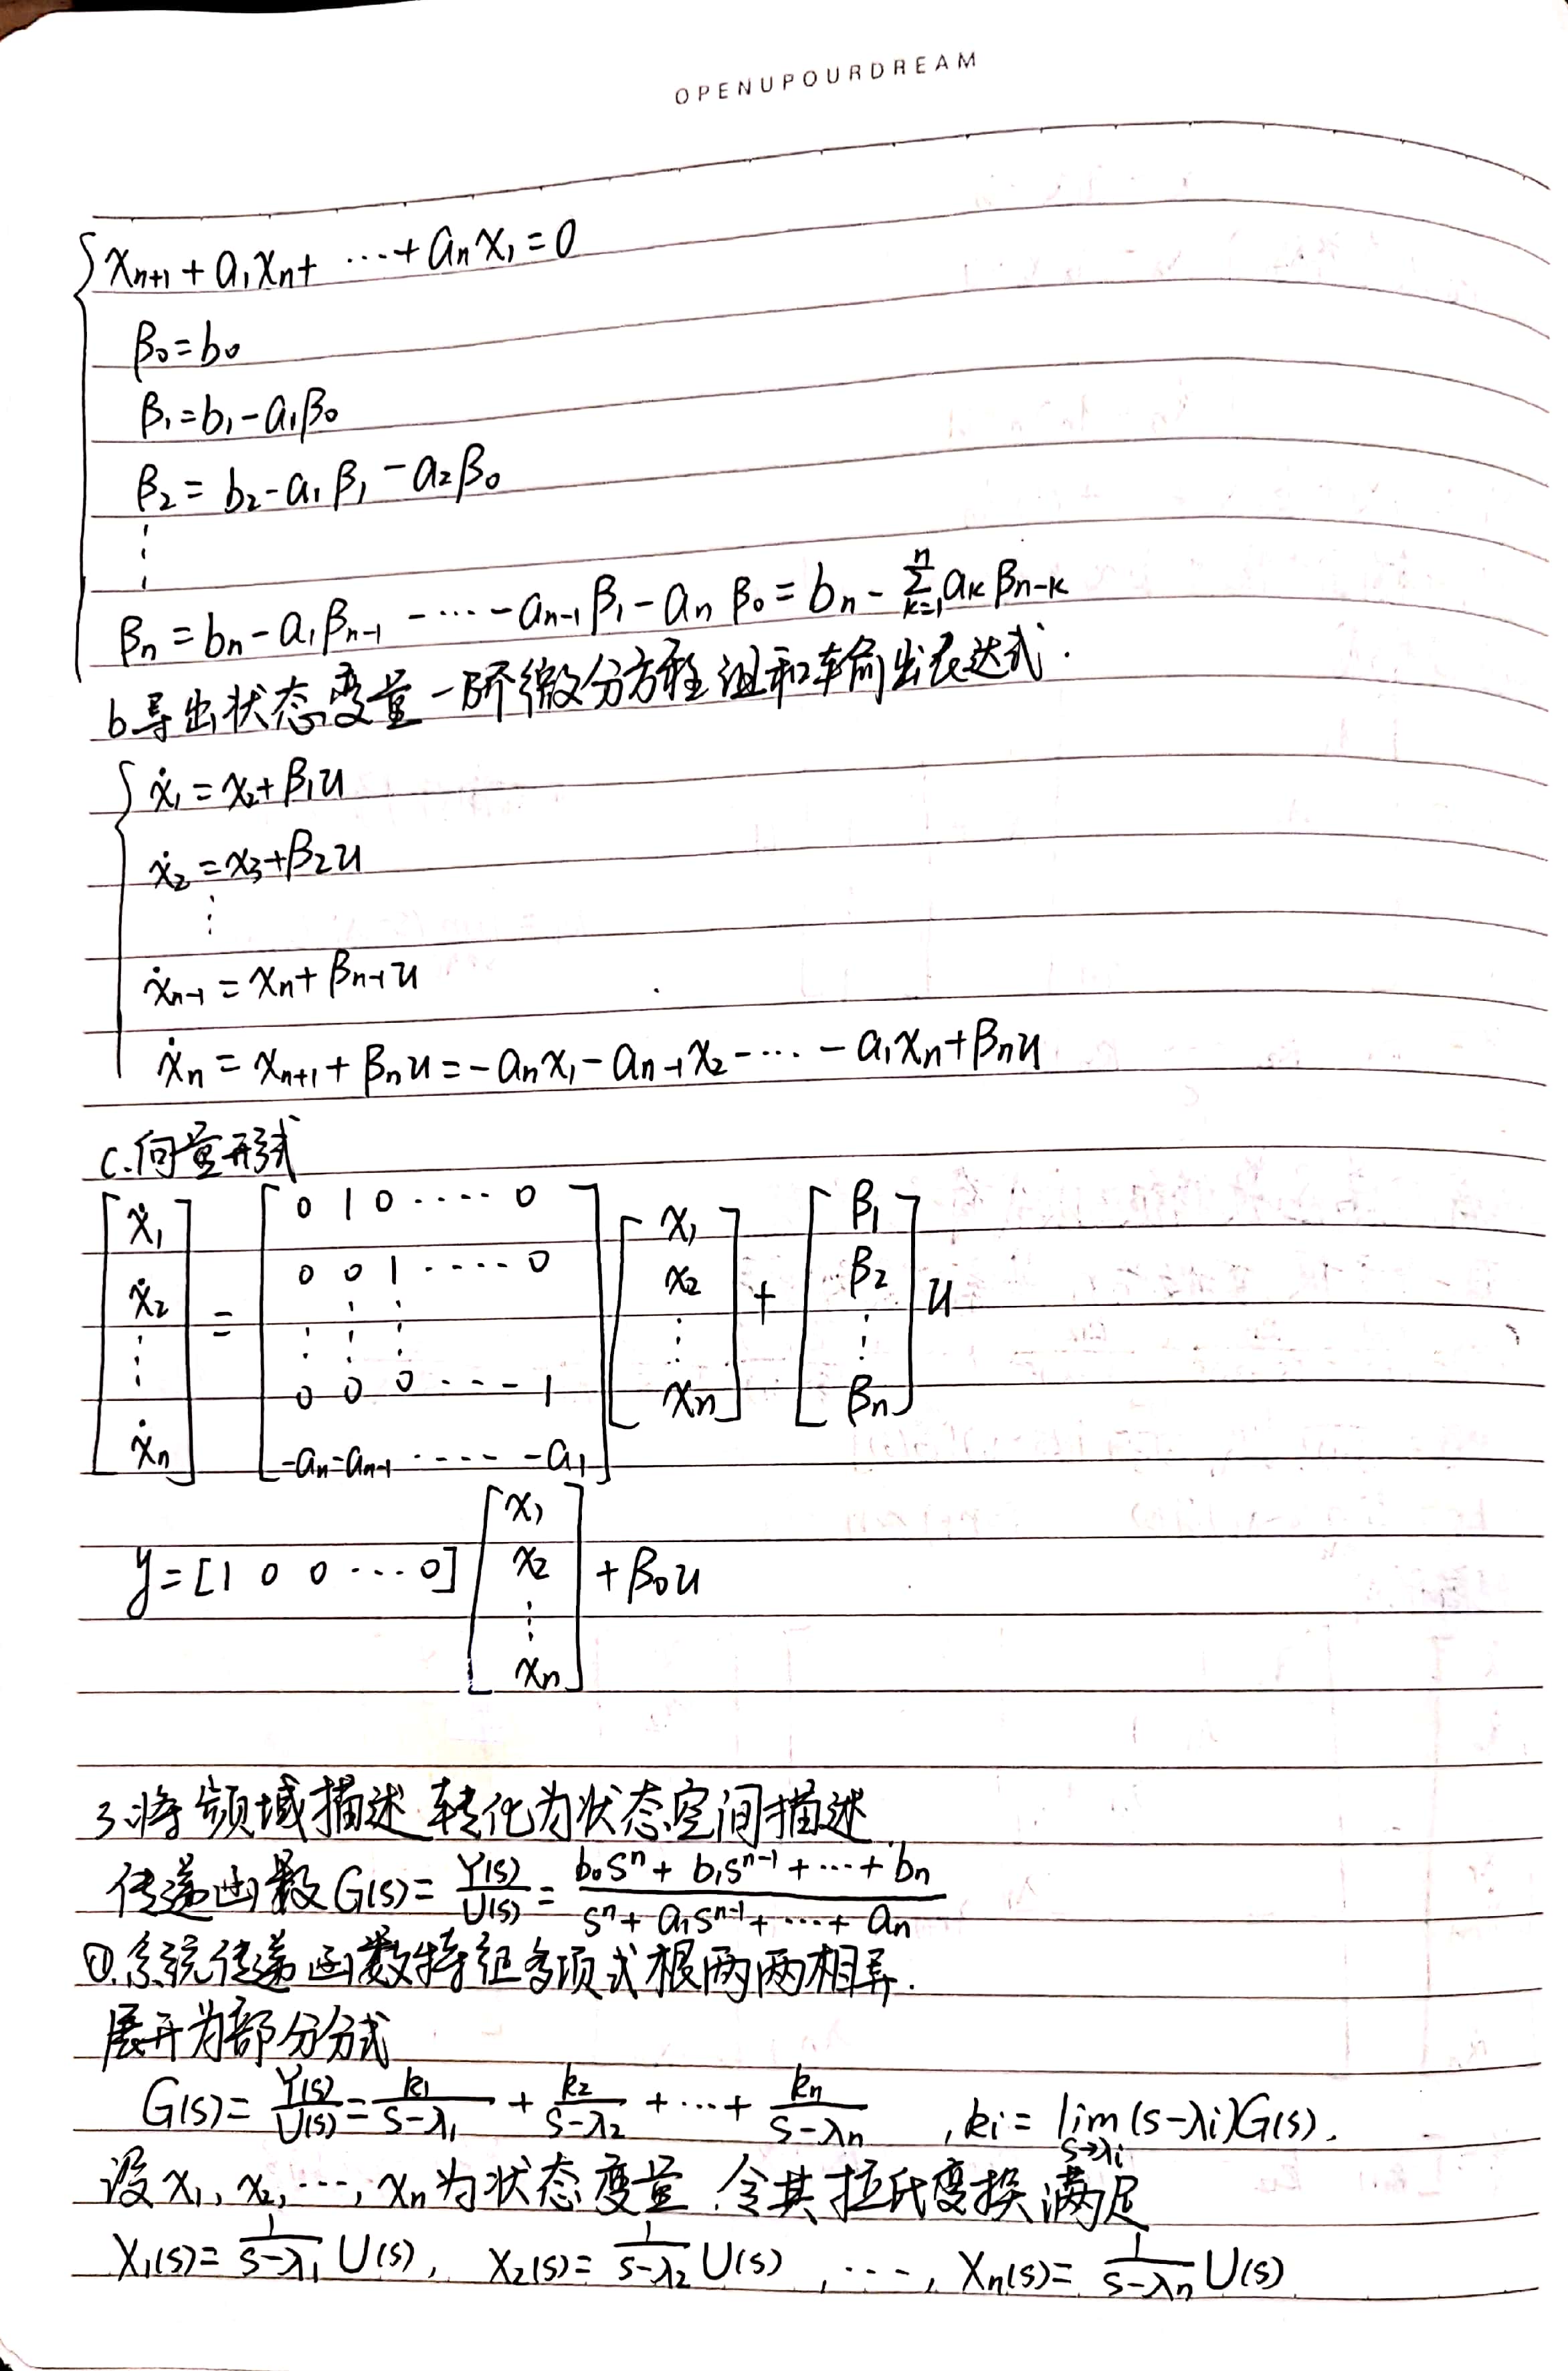 OPENUPOURDREAM
xₙ₊₁ + a₁xₙ + ⋯ + aₙx₁ = 0
β₀ = b₀
β₁ = b₁ - a₁β₀
β₂ = b₂ - a₁β₁ - a₂β₀
⋮
βₙ = bₙ - a₁βₙ₋₁ - ⋯ - aₙ₋₁β₁ - aₙβ₀ = bₙ - \sum_{k=1}^{n} aₖβₙ₋ₖ
b.导出状态变量一阶微分方程组和输出表达式.
ẋ₁ = x₂ + β₁u
ẋ₂ = x₃ + β₂u
⋮
ẋₙ₋₁ = xₙ + βₙ₋₁u
ẋₙ = xₙ₊₁ + βₙu = -aₙx₁ - aₙ₋₁x₂ - ⋯ - a₁xₙ + βₙu
c.向量形式
\begin{bmatrix} ẋ₁ \\ ẋ₂ \\ ⋮ \\ ẋₙ \end{bmatrix} = \begin{bmatrix} 0 & 1 & 0 & ⋯ & 0 \\ 0 & 0 & 1 & ⋯ & 0 \\ ⋮ & ⋮ & ⋮ & & \\ 0 & 0 & 0 & ⋯ & 1 \\ -aₙ & -aₙ₋₁ & ⋯ & & -a₁ \end{bmatrix} \begin{bmatrix} x₁ \\ x₂ \\ ⋮ \\ xₙ \end{bmatrix} + \begin{bmatrix} β₁ \\ β₂ \\ ⋮ \\ βₙ \end{bmatrix} u
y = [1 0 0 ⋯ 0] \begin{bmatrix} x₁ \\ x₂ \\ ⋮ \\ xₙ \end{bmatrix} + β₀u
3.将频域描述转化为状态空间描述
传递函数 G(s) = \frac{Y(s)}{U(s)} = \frac{b₀sⁿ + b₁sⁿ⁻¹ + ⋯ + bₙ}{sⁿ + a₁sⁿ⁻¹ + ⋯ + aₙ}
①.系统传递函数特征多项式根两两相异.
展开为部分分式
G(s) = \frac{Y(s)}{U(s)} = \frac{k₁}{s-λ₁} + \frac{k₂}{s-λ₂} + ⋯ + \frac{kₙ}{s-λₙ} , kᵢ = \lim_{s→λᵢ} (s-λᵢ)G(s).
设 x₁, x₂, ⋯, xₙ 为状态变量,令其拉氏变换满足
X₁(s) = \frac{1}{s-λ₁} U(s), X₂(s) = \frac{1}{s-λ₂} U(s), ⋯, Xₙ(s) = \frac{1}{s-λₙ} U(s)